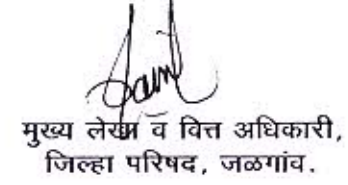 मुख्य लेखा व वित्त अधिकारी,
जिल्हा परिषद, जळगांव.